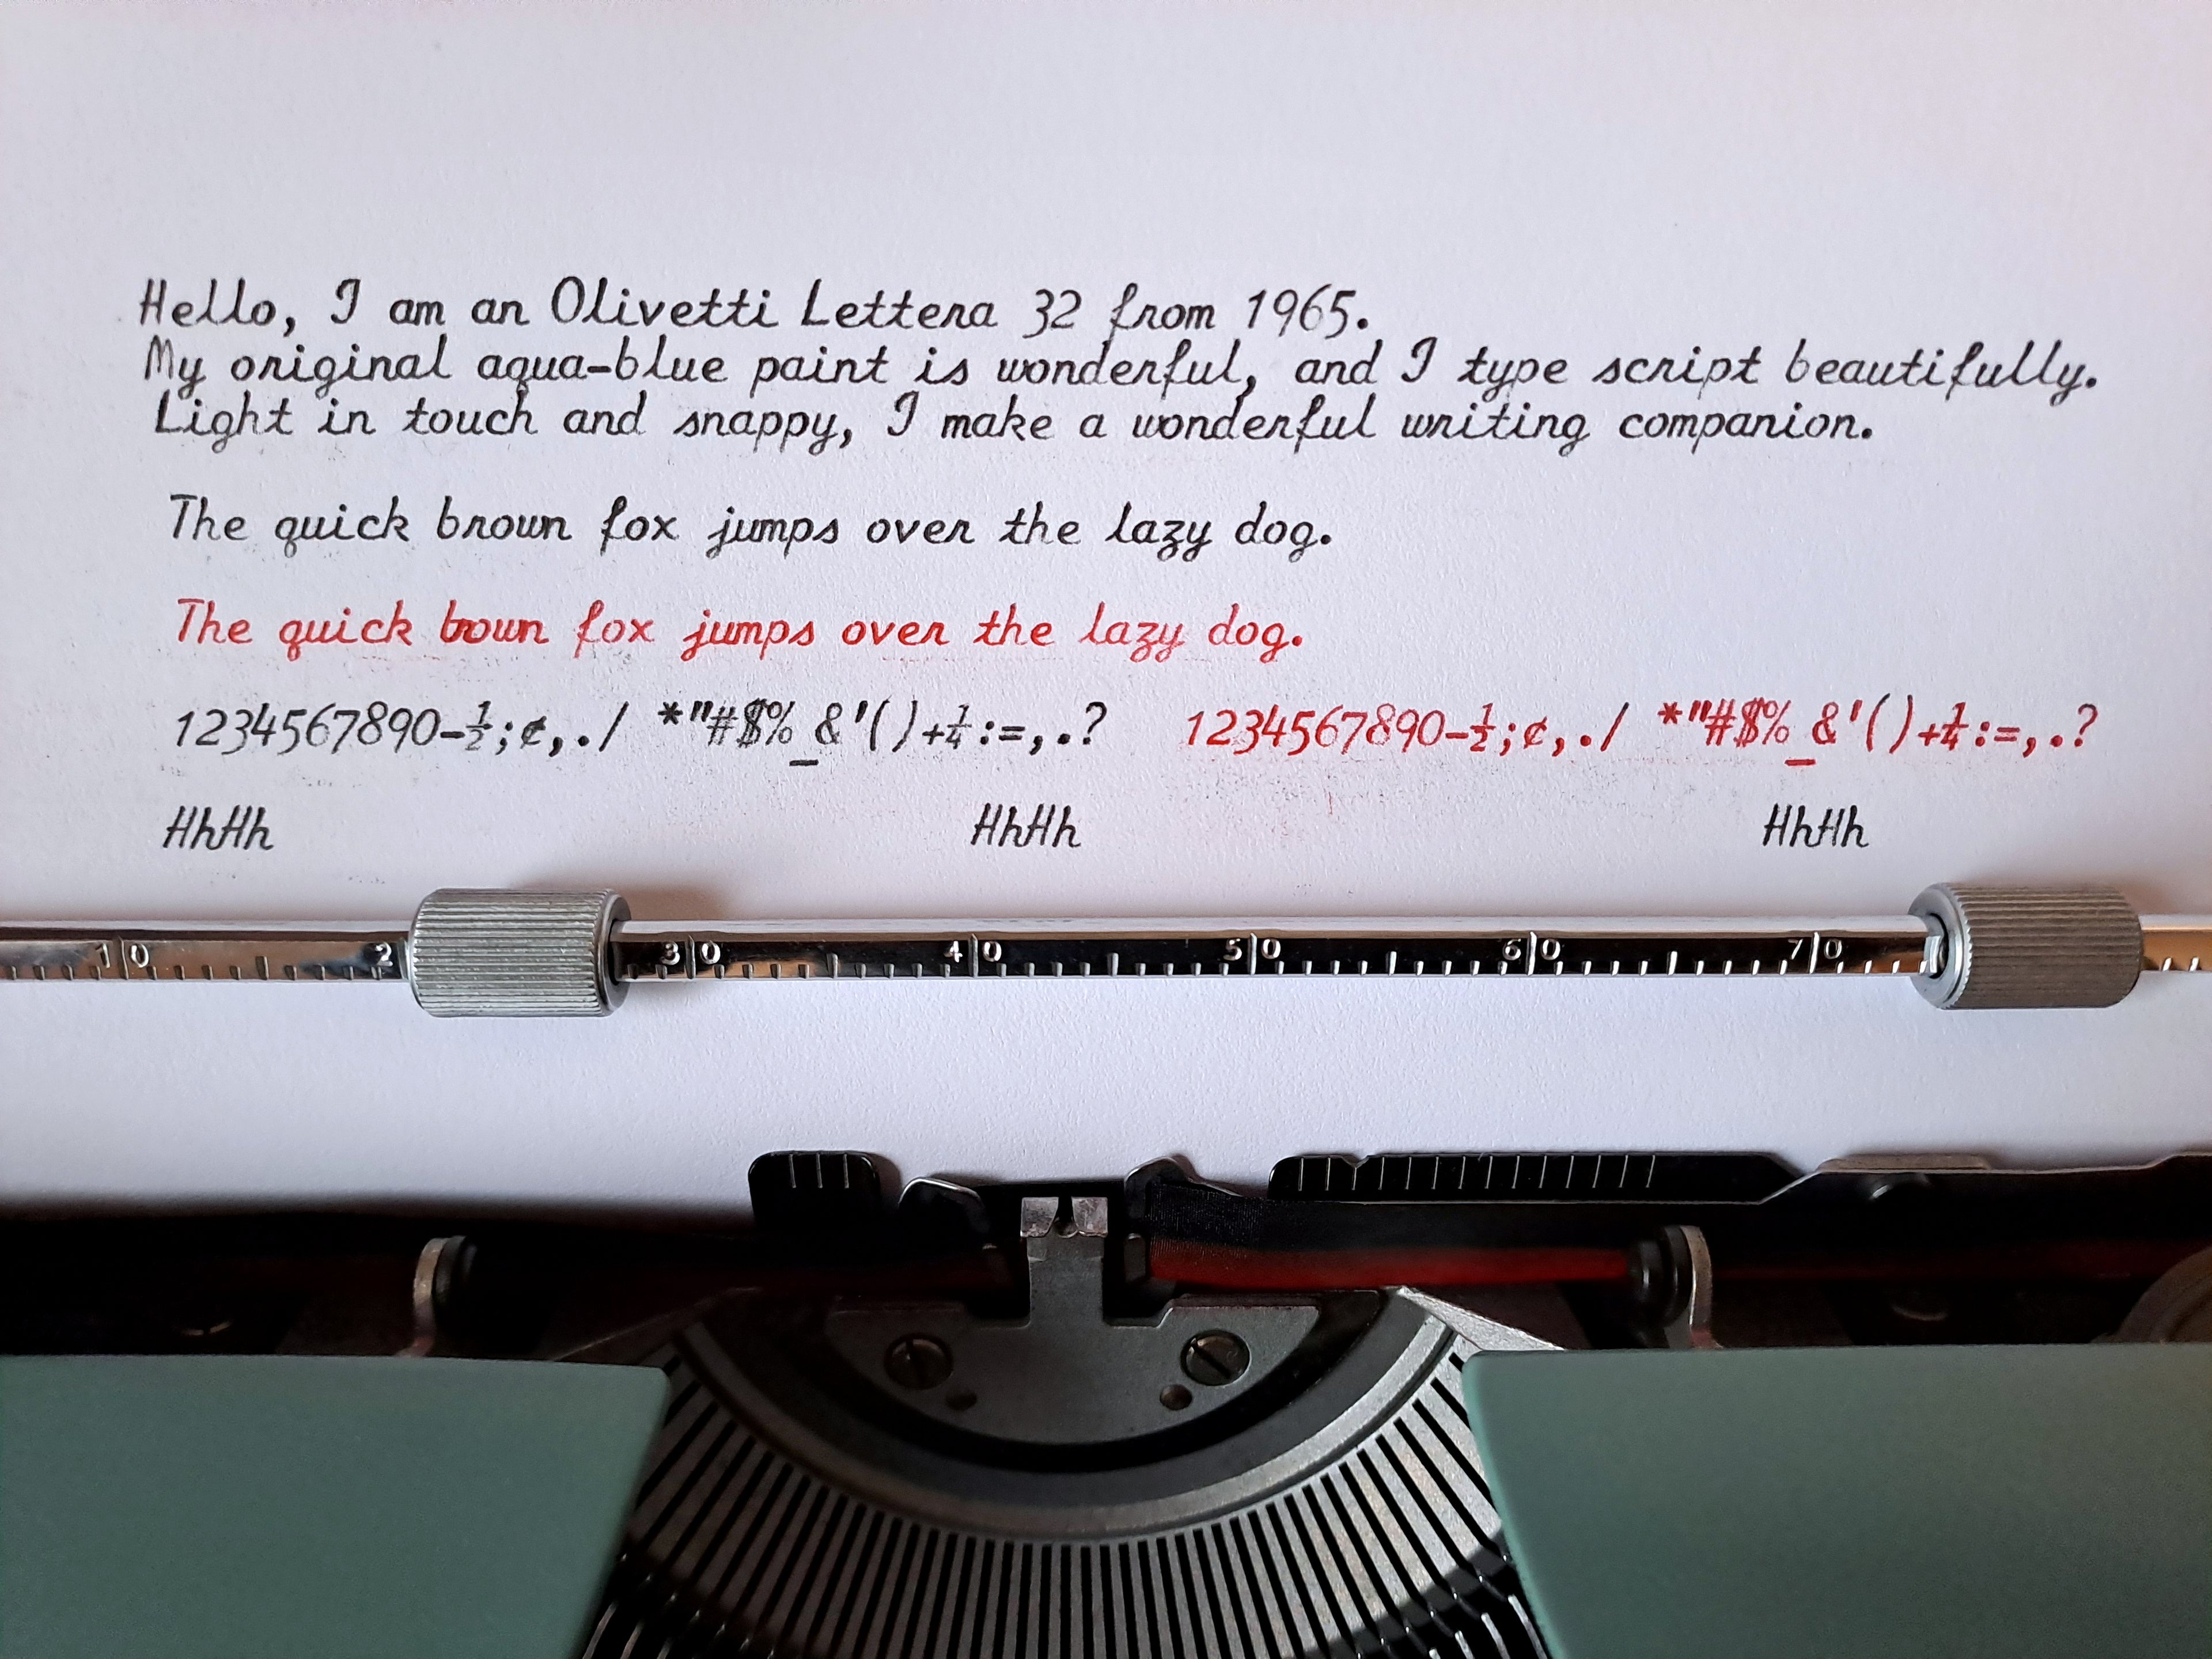 Hello, I am an Olivetti Lettera 32 from 1965.
My original aqua-blue paint is wonderful, and I type script beautifully.
Light in touch and snappy, I make a wonderful writing companion.
The quick brown fox jumps over the lazy dog.
The quick brown fox jumps over the lazy dog.
1234567890-½;¢,./ *"#$%_&'()+¼:=,.? 1234567890-½;¢,./ *"#$%_&'()+¼:=,.?
HhHh HhHh HhHh
10 2 30 40 50 60 70